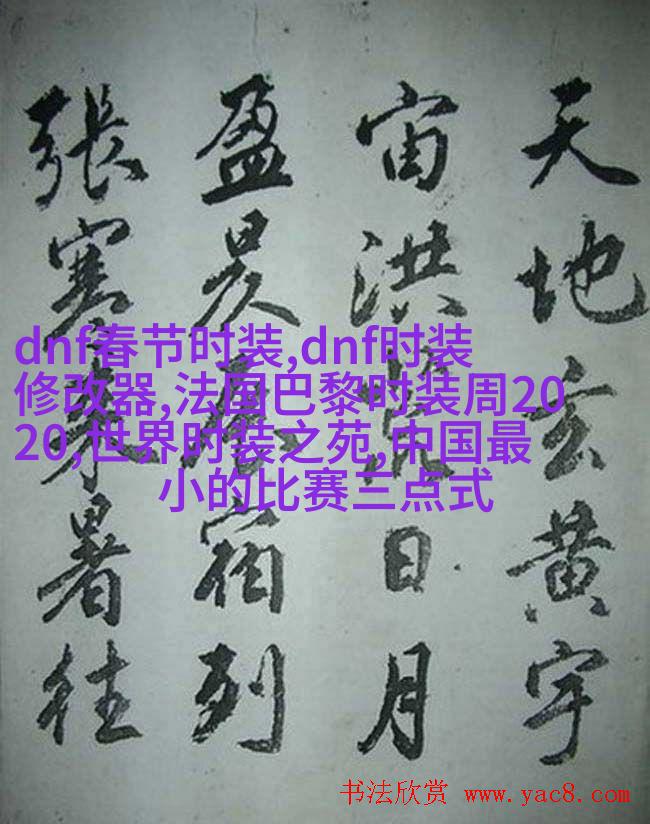 天地玄黄宇
宙洪荒日月
盈昃辰宿列
張寒来暑往
dnf春节时装,dnf时装
修改器,法国巴黎时装周20
20,世界时装之苑,中国最
小的比赛三点式
书法欣赏 www.yac8.com